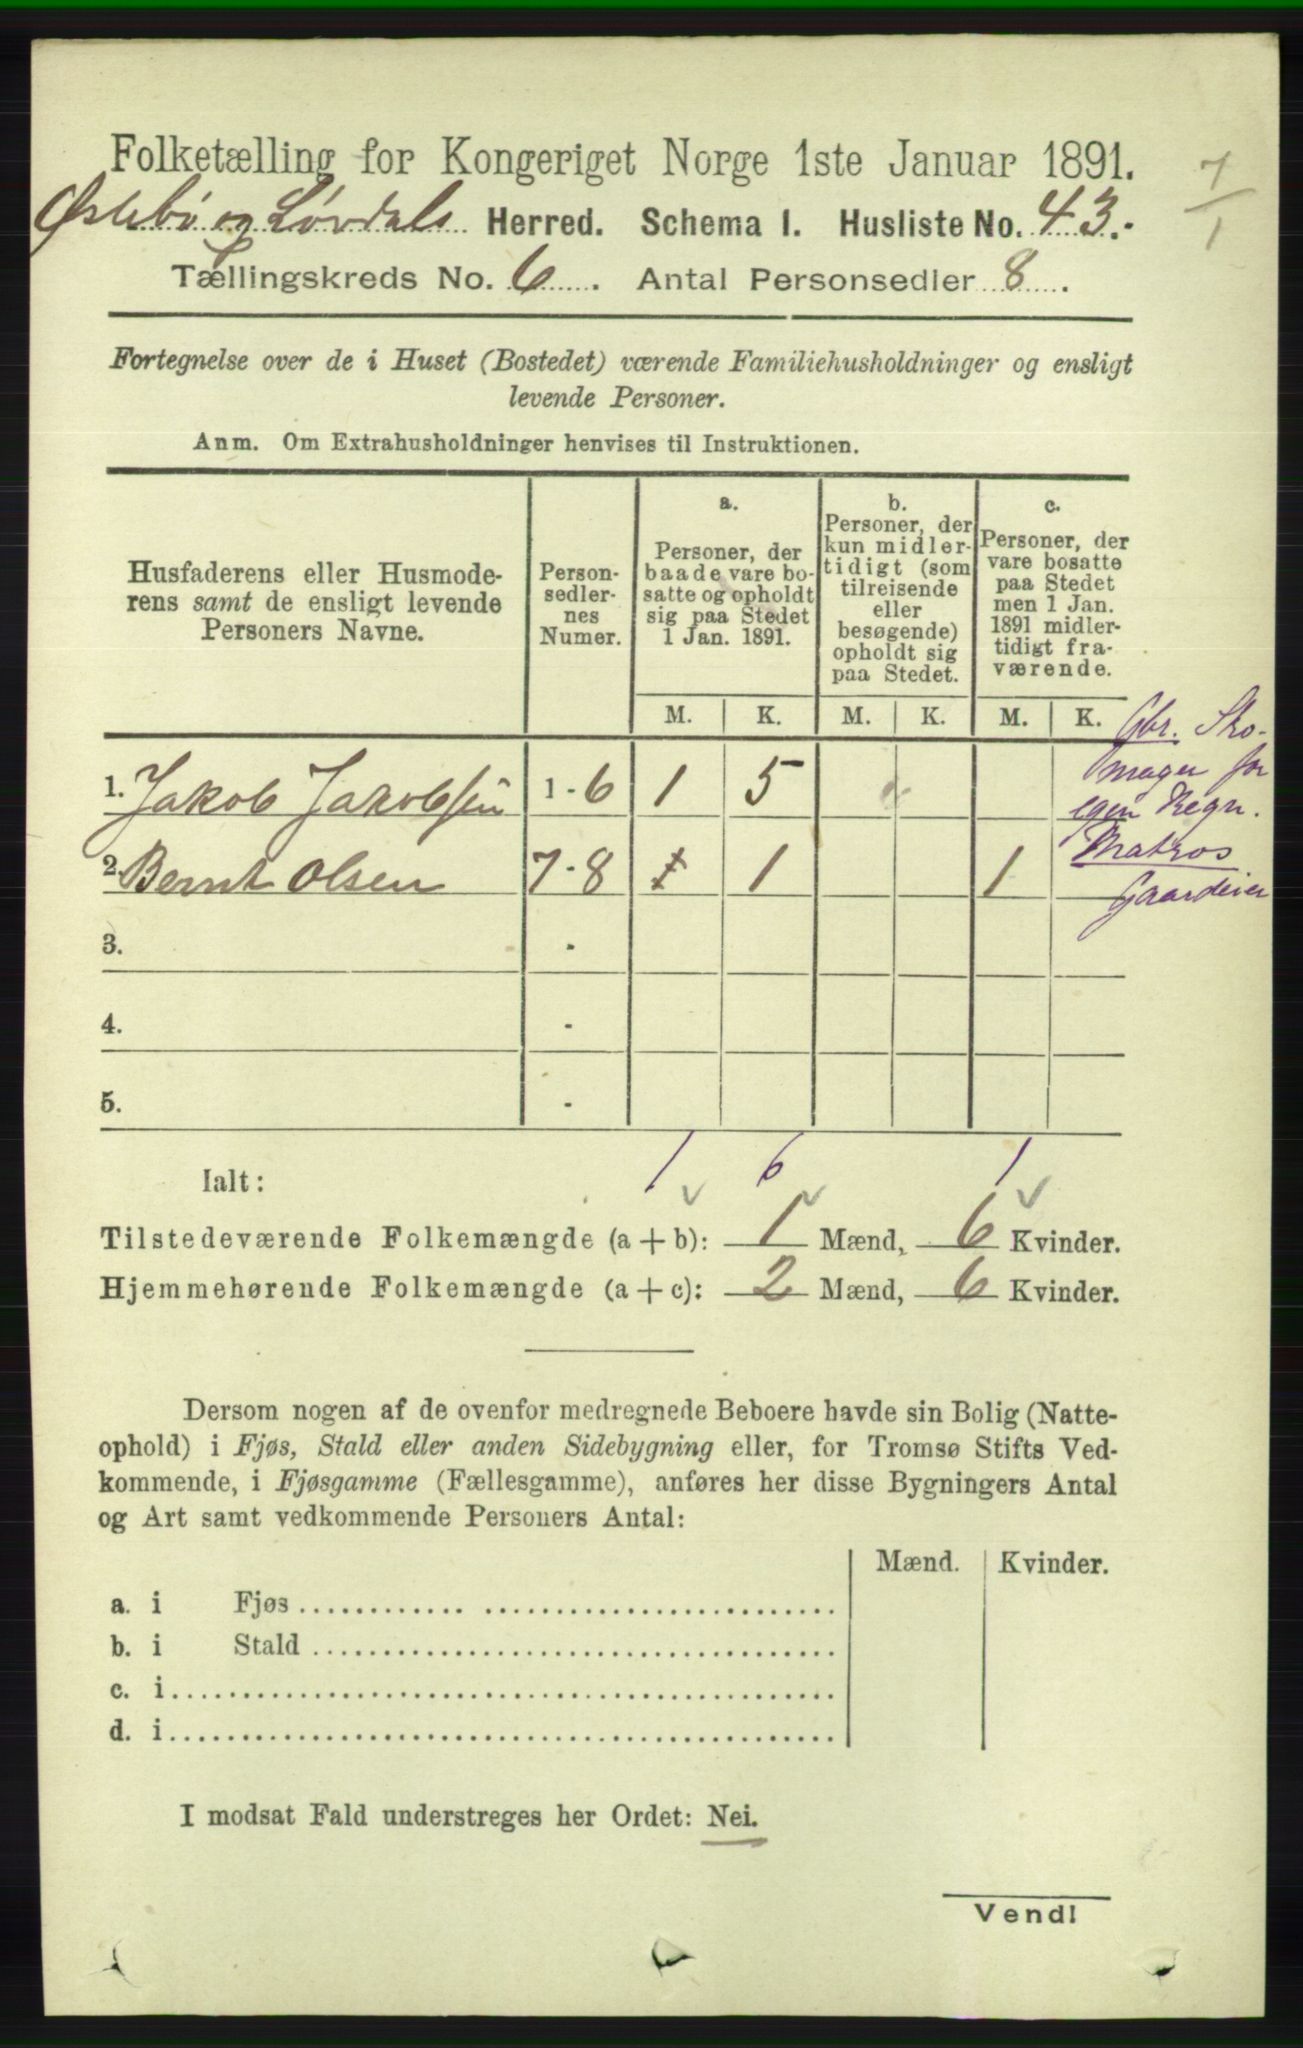 Folketælling for Kongeriget Norge 1ste Januar 1891.
7/1
Østebø og Løvdals Herred. Schema I. Husliste No. 43.
Tællingskreds No. 6. Antal Personsedler 8.
Fortegnelse over de i Huset (Bostedet) værende Familiehusholdninger og ensligt
levende Personer.
Anm. Om Extrahusholdninger henvises til Instruktionen.
Husfaderens eller Husmode-
rens samt de ensligt levende
Personers Navne.
Person-
sedler-
nes
Numer.
a.
Personer, der
baade vare bo-
satte og opholdt
sig paa Stedet
1 Jan. 1891.
b.
Personer, der
kun midler-
tidigt (som
tilreisende
eller
besøgende)
opholdt sig
paa Stedet.
c.
Personer, der
vare bosatte
paa Stedet
men 1 Jan.
1891 midler-
tidigt fra-
værende.
M. K. M. K. M. K.
Gbr. Sko-
mager for
egen Regn.
1. Jakob Jakobsen 1-6 1 5
Matros
Gaardeier
2. Bernt Olsen 7-8 1 1
3. -
4. -
5. -
1 6 1
Ialt:
Tilstedeværende Folkemængde (a + b): 1 Mænd, 6 Kvinder.
Hjemmehørende Folkemængde (a + c): 2 Mænd, 6 Kvinder.
Dersom nogen af de ovenfor medregnede Beboere havde sin Bolig (Natte-
ophold) i Fjøs, Stald eller anden Sidebygning eller, for Tromsø Stifts Ved-
kommende, i Fjøsgamme (Fællesgamme), anføres her disse Bygningers Antal
og Art samt vedkommende Personers Antal:
Mænd. Kvinder.
a. i Fjøs
b. i Stald
c. i
d. i
I modsat Fald understreges her Ordet: Nei.
Vend!